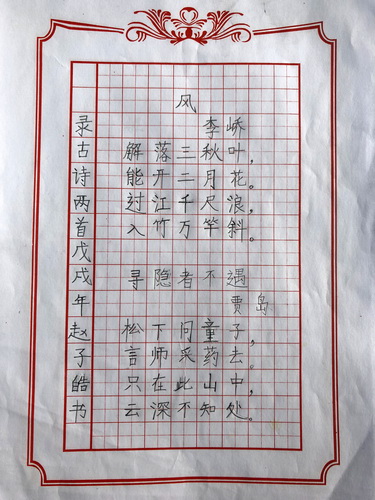 风
李峤
解落三秋叶，
能开二月花。
过江千尺浪，
入竹万竿斜。
寻隐者不遇
贾岛
松下问童子，
言师采药去。
只在此山中，
云深不知处。
录古诗两首戊戌年赵子皓书